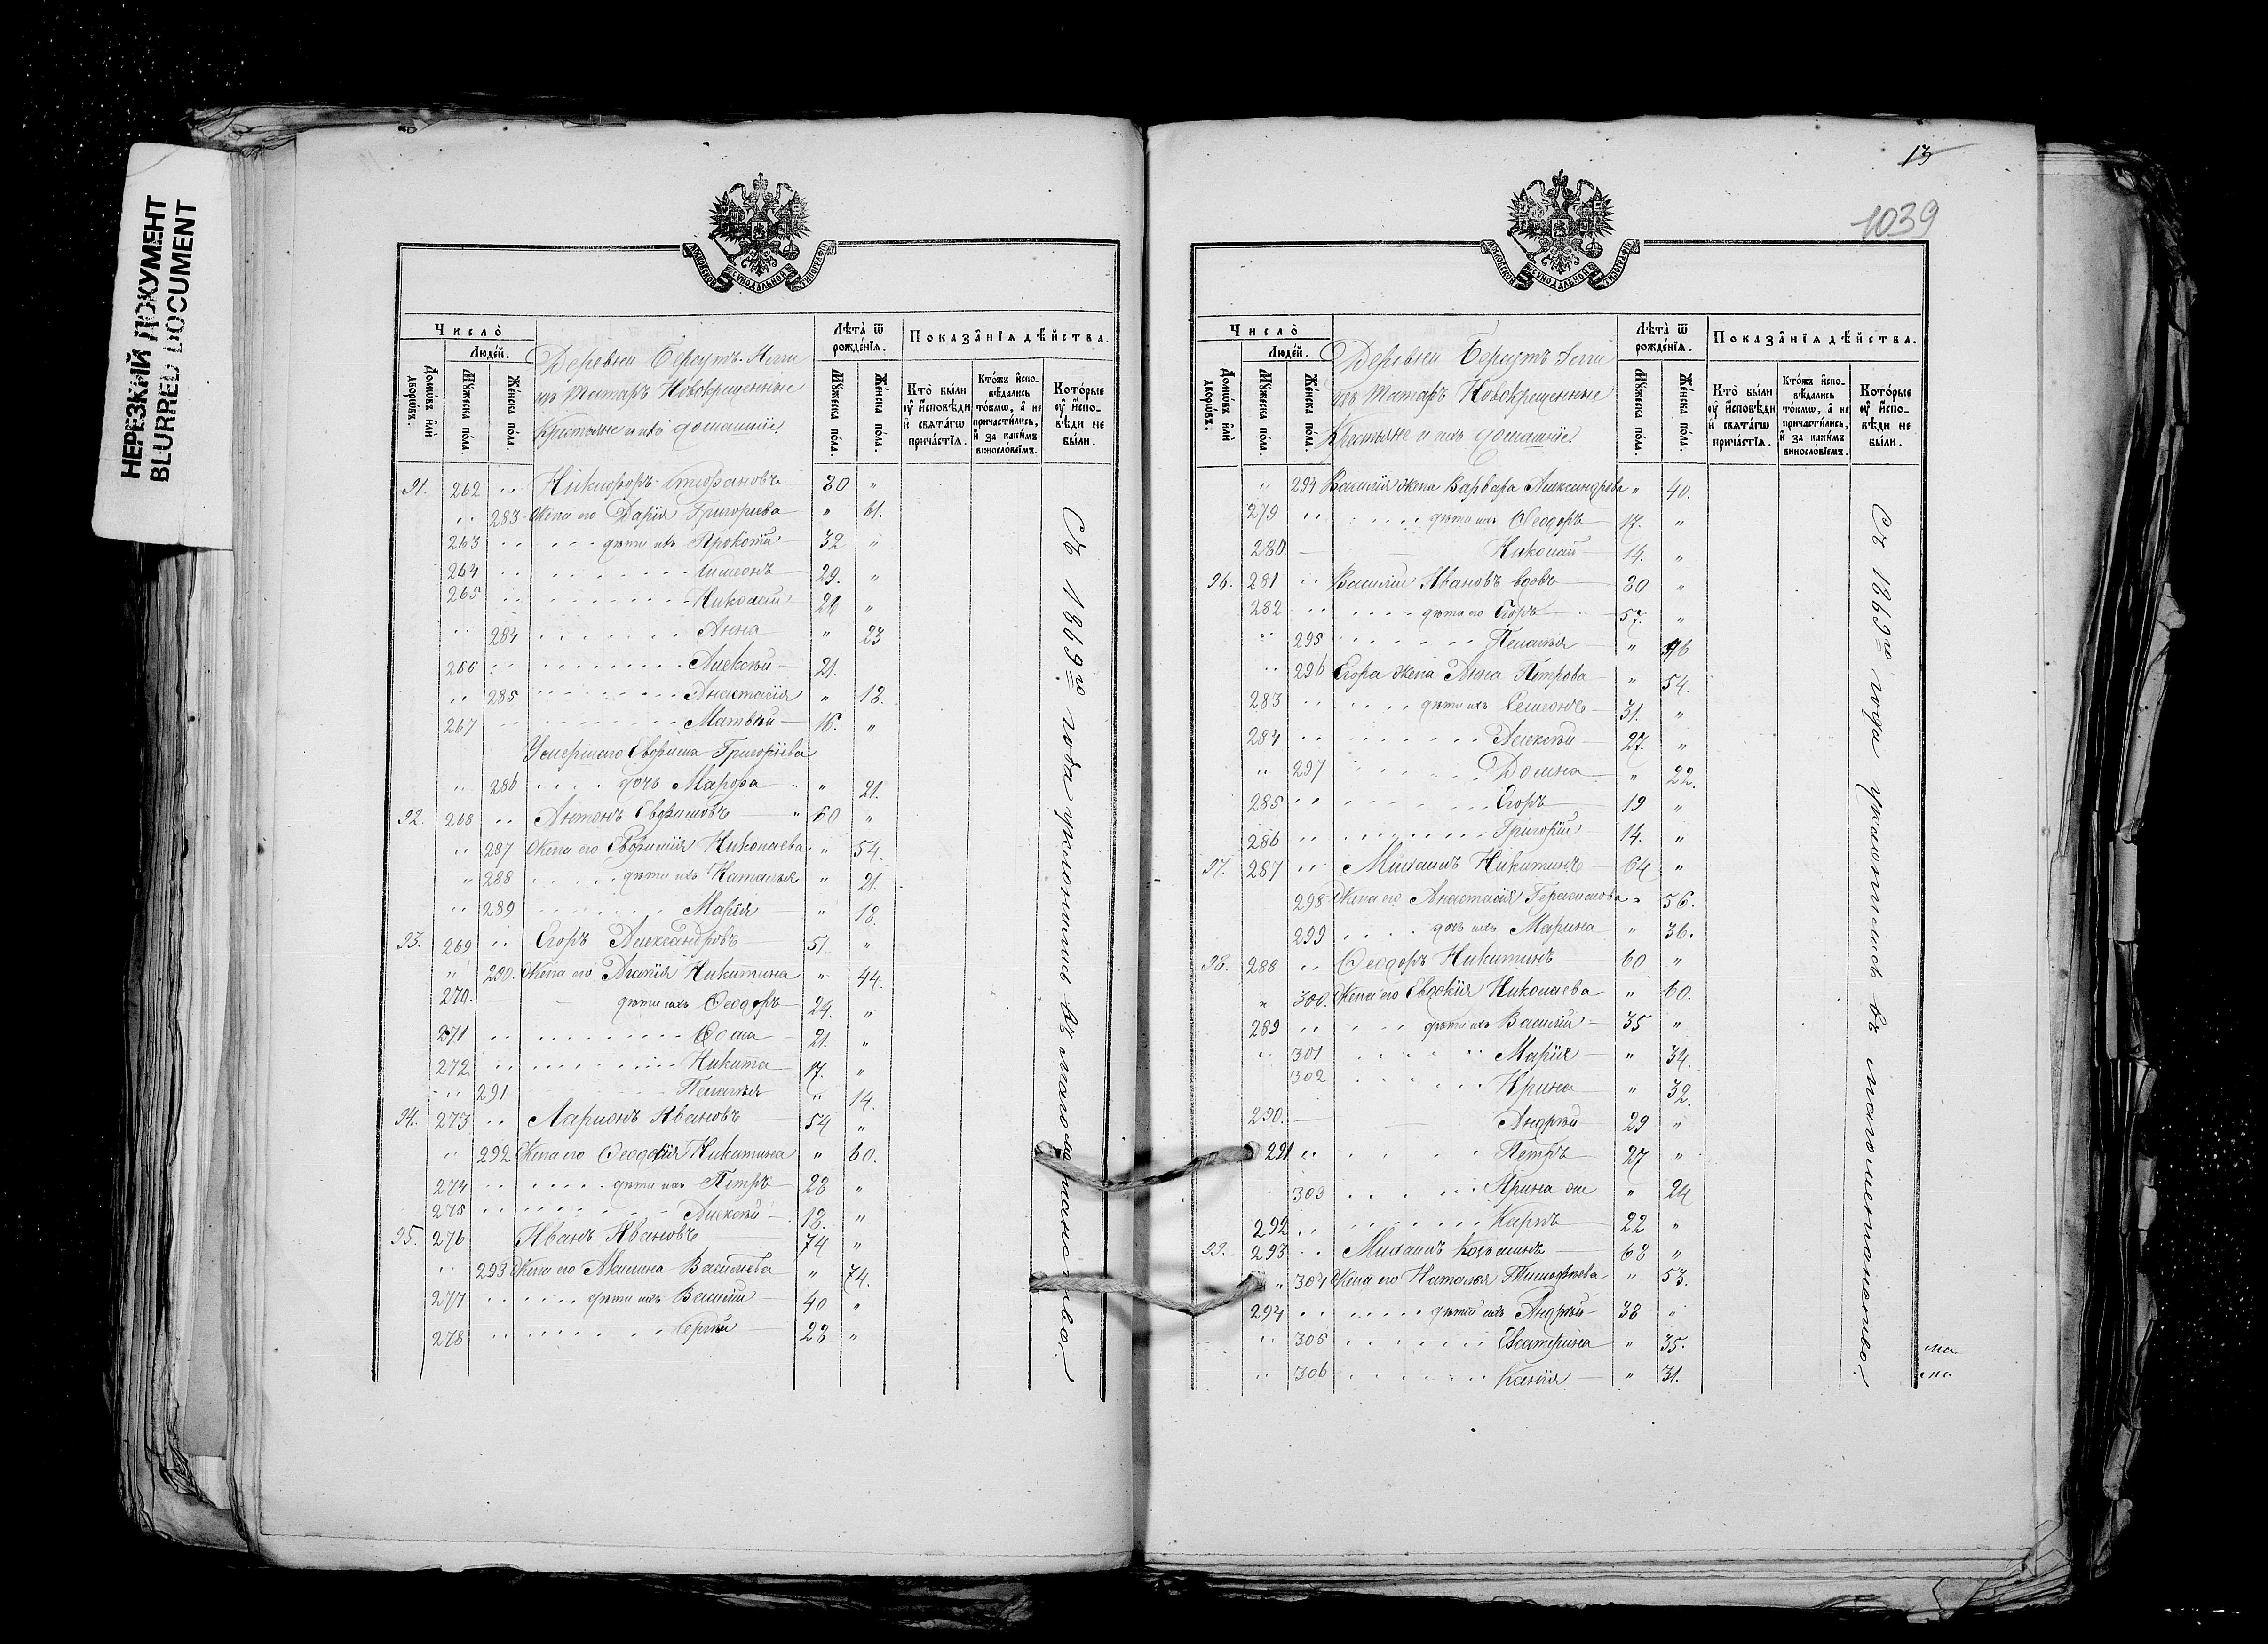 НЕРЕЗКИЙ ДОКУМЕНТ
BLURRED DOCUMENT
МОСКОВСКОЙ СѴНОДАЛЬНОЙ ТИПОГРАФІИ
Число̀
Людей.
Домѡвъ и҆лѝ дворѡвъ.
Мꙋжеска пола.
Же́нска пола.
Деревни Берсутъ
изъ Татаръ Новокрещенные
Крестьяне и ихъ домашніе.
Лѣта̀ ѿ рожде́нїѧ.
Мꙋжеска пола.
Же́нска пола.
Показа̂нїѧ дѣ́йства.
Кто̀ бы́ли оу҆ и҆сповѣди и҆ свѧта́гѡ прича́стїѧ.
Кто́жъ и҆спо-вѣдались то́кмѡ, а҆ не причасти́лись, и҆ за каки́мъ винословіемъ.
Кото́рые оу҆ и҆спо-вѣди не бы́ли.
91. 262 „ Никифоръ Стефановъ 80 „
„ 283 Жена его Дарія Григорьева „ 61.
263 „ дѣти ихъ Прокопій 32 „
264 „ Симеонъ 29. „
265 „ Николай 26 „
„ 284 Анна „ 23
266 „ Алексѣй 21.
„ 285 Анастасія „ 18.
267 „ Матвѣй 16. „
Умершаго Евфима Григорьева
„ 286 дочь Марфа „ 21.
92. 268 „ Антонъ Евфимовъ 60 „
„ 287 Жена его Евфимія Николаева „ 54.
„ 288 дѣти ихъ Наталья „ 21.
„ 289 Марія „ 18.
93. 269 „ Егоръ Александровъ 51. „
„ 290. Жена его Агапія Никитина „ 44.
270. дѣти ихъ Ѳеодоръ 24. „
271 „ Ѳома 21. „
272 „ Никита 17. „
„ 291 Пелагея „ 14.
94. 273 „ Ларионъ Ивановъ 54 „
„ 292 Жена его Никитина „ 60.
274 „ дѣти ихъ Петръ 28 „
275 „ Алексѣй 18. „
95. 276 Иванъ Ивановъ 74 „
„ 293 Жена его Васильева „ 74.
277 „ дѣти ихъ Василій 40 „
278 „ Сергѣй 28 „
Съ 1869го года уклонились въ магометанство.
13
1039
МОСКОВСКОЙ СѴНОДАЛЬНОЙ ТИПОГРАФІИ
Число̀
Людей.
Домѡвъ и҆лѝ дворѡвъ.
Мꙋжеска пола.
Же́нска пола.
Деревни Берсутъ
изъ Татаръ Новокрещенные
Крестьяне и ихъ домашніе
Лѣта̀ ѿ рожде́нїѧ.
Мꙋжеска пола.
Же́нска пола.
Показа̂нїѧ дѣ́йства.
Кто̀ бы́ли оу҆ и҆сповѣди и҆ свѧта́гѡ прича́стїѧ.
Кто́жъ и҆спо-вѣдались то́кмѡ, а҆ не причасти́лись, и҆ за каки́мъ винословіемъ.
Кото́рые оу҆ и҆спо-вѣди не бы́ли.
„ 294 Василія жена Варвара Александрова „ 40.
279 „ дѣти ихъ Ѳеодоръ 17. „
280 Николай 14. „
96. 281 „ Василій Ивановъ вдовъ 80 „
282 „ дѣти его Егоръ 57. „
„ 295 Пелагья „
„ 296 Егора жена Анна Петрова „ 54.
283 „ дѣти ихъ Семеонъ 31. „
284 „ Алексѣй 27. „
„ 297 Домна „ 22.
285 „ Егоръ 19 „
286 „ Григорій 14. „
97. 287 „ Михаилъ Никитинъ 64 „
298 Жена его Анастасія Герасимова „ 56.
299 дочь ихъ Марина „ 36.
98. 288 „ Ѳеодоръ Никитинъ 60 „
„ 300. Жена его Евдокія Николаева „ 60.
289 „ дѣти ихъ Василій 35 „
„ 301 Марія „ 34.
302 Ирина „ 32.
290. Андрей 29 „
291 „ Петръ 27 „
303 Ирина же „ 24
292 „ Карпъ 22 „
99. 293 „ Михаилъ Козминъ 68 „
„ 304 Жена его Наталья Тимофѣева „ 53.
294 „ дѣти ихъ Андрей 38 „
„ 305 Екатерина „ 35.
„ 306 Ксенія „ 31.
Съ 1869го года уклонились въ магометанство.